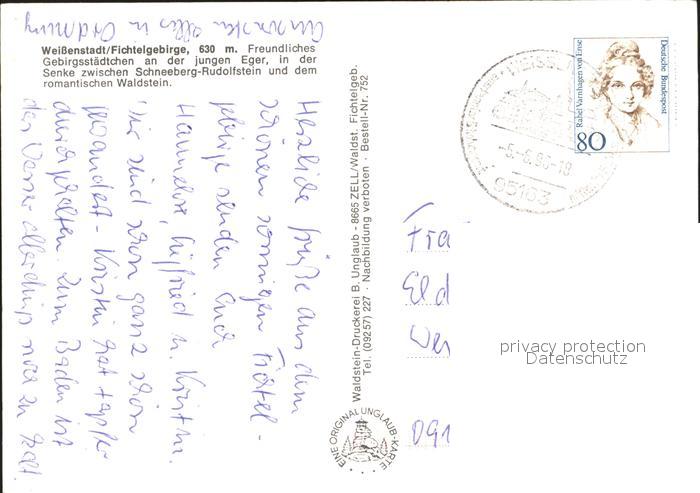 Weißenstadt/Fichtelgebirge, 630 m. Freundliches
Gebirgsstädtchen an der jungen Eger, in der
Senke zwischen Schneeberg-Rudolfstein und dem
romantischen Waldstein.
Herzliche Grüße aus dem
schönen sonnigen Fichtel-
gebirge senden Euch
Hannelore, Siegfried u. Kirstin.
Wir sind schon ganz schön
gewandert - Kirstin hat tapfer
durchgehalten. Zum Baden ist
das Wasser allerdings noch zu kalt.
Ansonsten alles in Ordnung
Waldstein-Druckerei B. Unglaub · 8665 ZELL/Waldst. Fichtelgeb.
Tel. (09257) 227 · Nachbildung verboten · Bestell-Nr. 752
EINE ORIGINAL UNGLAUB-KARTE
Deutsche Bundespost
Rahel Varnhagen von Ense
80
95163
Fra
Eld
Wer
091
privacy protection
Datenschutz